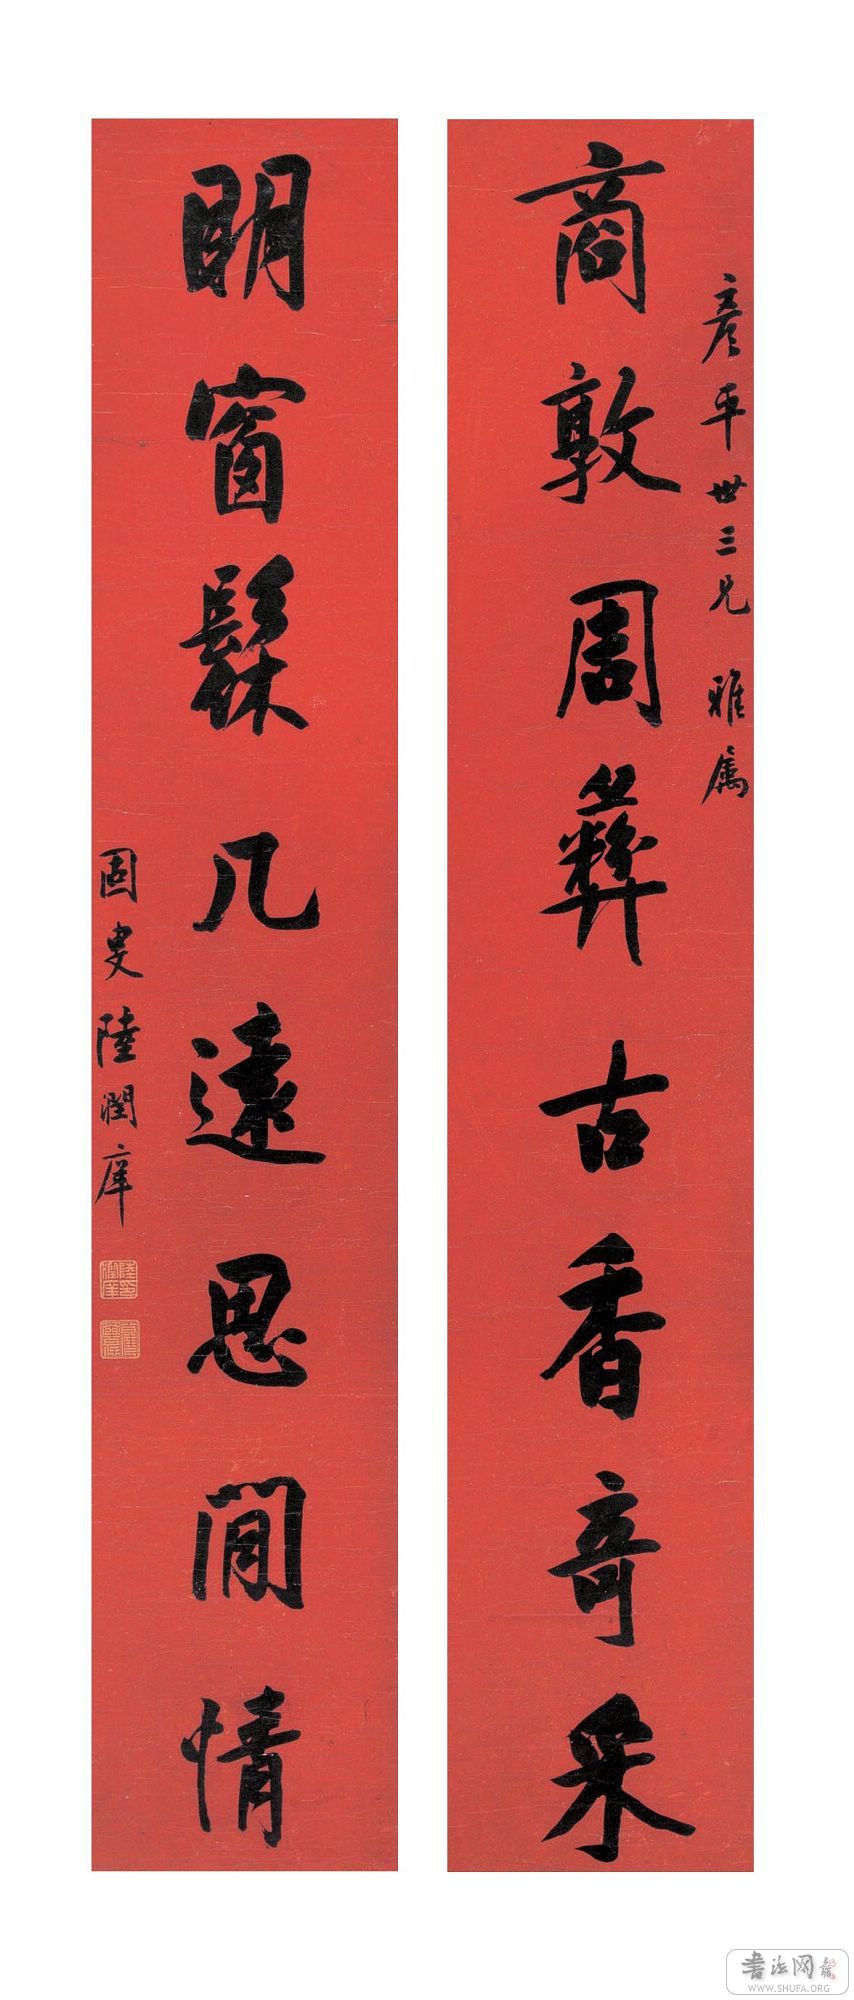 彦平世三兄雅属
商敦周彝古香奇采
明窗髹几远思閒情
固叟陸潤庠
書法网
WWW.SHUFA.ORG